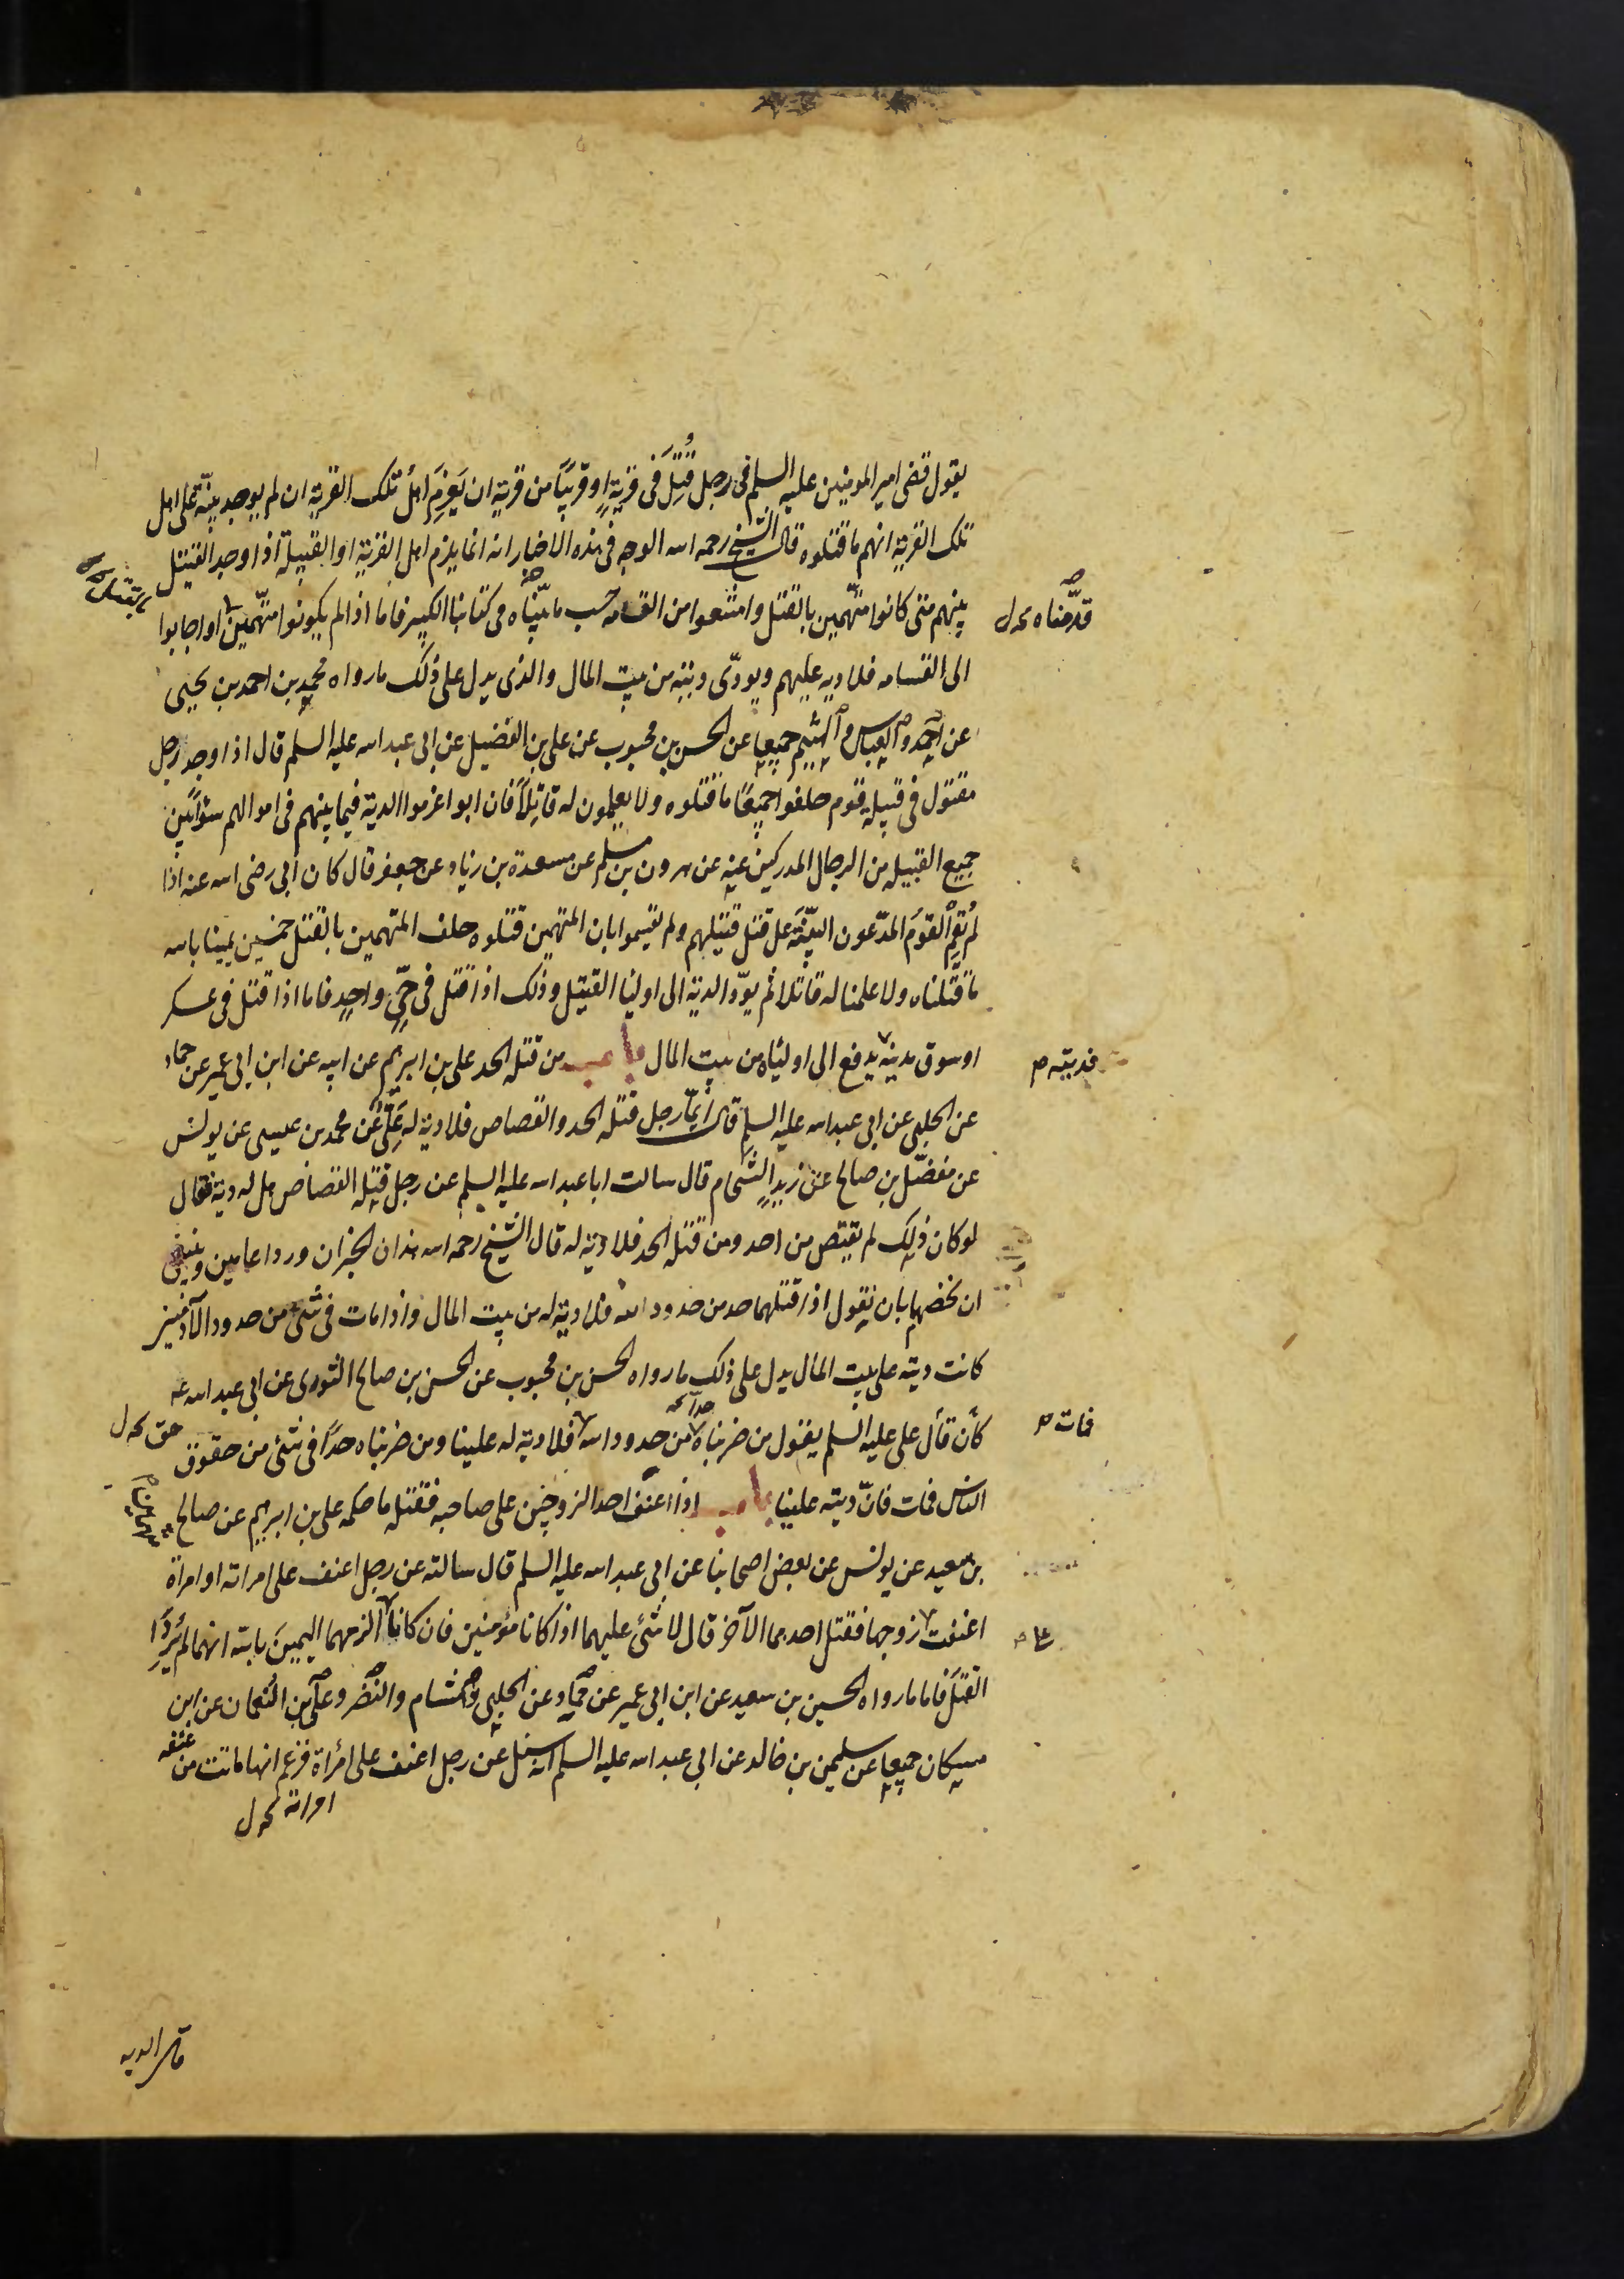 يقول قضى امير المومنين عليه السلم فى رجل قُتِلَ فى قرية او قريبًا من قرية ان يغرم اهلُ تلك القرية ان لم يوجد بينة على اهل
تلك القرية انهم ما قتلوه قال الشيخ رحمه الله الوجه فى هذه الاخبار انه انما يلزم اهل القرية او القبيلة اذا وجد القتيل
بينهم متى كانوا متّهمين بالقتل وامتنعوا من القسامه حسب ما بيّنّاه فى كتابنا الكبير فاما اذا لم يكونوا متّهمين او اجابوا
قدّمناه
بالقتل
الى القسامه فلا ديه عليهم ويودّى ديته من بيت المال والذى يدل على ذلك ما رواه محمد بن احمد بن يحيى
عن احمد والعباس والهيثم جميعا عن الحسن بن محبوب عن على بن الفضيل عن ابى عبد الله عليه السلم قال اذا وجد رجل
مقتول فى قبيلة قوم حلفوا جميعًا ما قتلوه ولا يعلمون له قاتلًا فان ابوا اغرموا الدية فيما بينهم فى اموالهم سوا بين
جميع القبيلة من الرجال المدركين عنه عن هرون بن مسلم عن مسعدة بن زياد عن جعفر قال كان ابى رضى الله عنه اذا
لم يُقِمِ القومُ المدّعون البيّنةَ على قتل قتيلهم ولم يقسموا بان المتهمين قتلوه حلف المتهمين بالقتل خمسين يمينا بالله
ما قتلناه ولا علمنا له قاتلا ثم يودّ الدية الى اوليا القتيل وذلك اذا قتل فى حىّ واحد فاما اذا قتل فى عسكر
او سوق مدينة يدفع الى اوليائه من بيت المال باب من قتله الحد على بن ابرهيم عن ابيه عن ابن ابى عمير عن حماد
فديته
عن الحلبى عن ابى عبد الله عليه السلم قال ايّما رجل قتله الحد والقصاص فلا دية له على عن محمد بن عيسى عن يونس
عن مفضّل بن صالح عن زيد الشحام قال سالت ابا عبد الله عليه السلم عن رجل قتله القصاص هل له دية فقال
لو كان ذلك لم يقتص من احد ومن قتله الحد فلا دية له قال الشيخ رحمه الله هذان الخبران وردا عامين وينبغى
ان نخصهما بان نقول اذا قتلهما حد من حدود الله فلا دية له من بيت المال واذا مات فى شئ من حدود الآدميين
كانت ديته على بيت المال يدل على ذلك ما رواه الحسن بن محبوب عن الحسن بن صالح الثورى عن ابى عبد الله عه
كان قال على عليه السلم يقول من ضربناه حدا من حدود الله فلا دية له علينا ومن ضربناه حدًا فى شئ من حقوق
فمات
حق
الناس فمات فانّ ديته علينا باب اذا اعنف احد الزوجين على صاحبه فقتله ما حكمه على بن ابرهيم عن صالح
بن سعيد عن يونس عن بعض اصحابنا عن ابى عبد الله عليه السلم قال سالته عن رجل اعنف على امراته او امراة
اعنفت زوجها فقتل احدهما الآخر قال لا شئ عليهما اذا كانا مؤمنين فان كانا الزمهما اليمين بالله انهما لم يُريدا
القتل فاما ما رواه الحسين بن سعيد عن ابن ابى عمير عن حماد عن الحلبى وهشام والنضر وعلى بن النعمان عن ابن
مسكان جميعا عن سليمن بن خالد عن ابى عبد الله عليه السلم انه سئل عن رجل اعنف على امرأة فزعم انها ماتت من عنفه
امراته
قال الديه